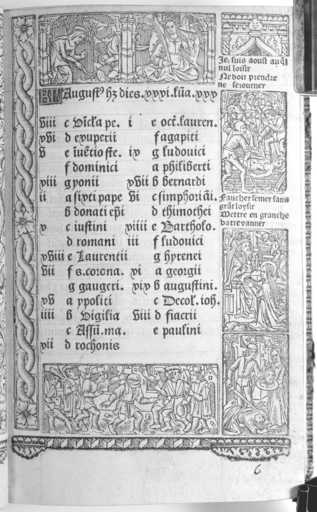 Je suis aoust au q̄l
nul loisir
Ne doit prendre
ne seiourner
August' hʒ dies .xxxi. lūa .xxx
viii c Vīcla pe.
xvi d exuperii
v e īuētio ste.
f dominici
xiii g yonii
ii a sixti pape
b donati ep̄i
x c iustini
d romani
xviii e Laurentii
vii f s. corona.
g gaugeri.
xv a ypoliti
iiii b Vigilia
c Assū. ma.
xii d rochonis
i e oct̄. lauren.
f agapiti
ix g ludouici
a philiberti
xvii b bernardi
vi c simphoriāi.
d thimothei
xiiii e Bartholo.
iii f ludouici
g hyrenei
xi a georgii
xix b augustini.
c Decol. ioh.
viii d fiacrii
e paulini
Faucher semer sans
Mettre en granche
batre vanner
6